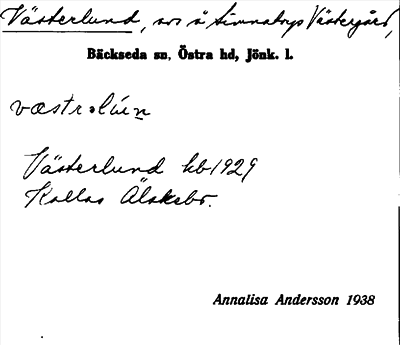 Västerlund, sv å Simnatorps Västergård,
Bäckseda sn, Östra hd, Jönk. l.
væstr₉lúṉ
Västerlund hb 1929
Kallas Älskebo.
Annalisa Andersson 1938